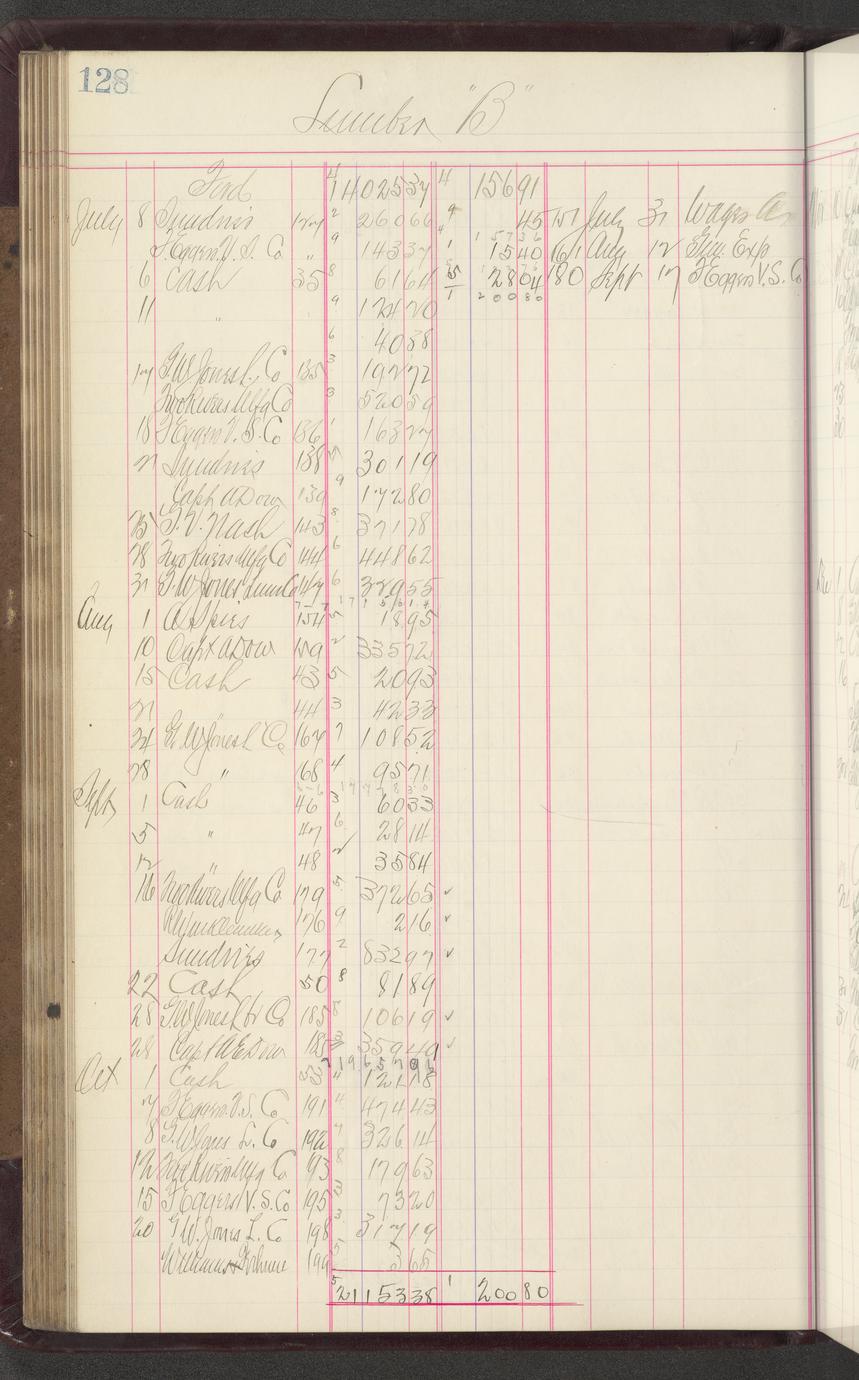 128
Lumber "B"
Ford. 4 14025 37 4 156 91
July 8 Sundries 127 2 260 66 4 45 151 July 31 Wages
F. Eggers V. S. Co " 9 143 37 1 15 40 161 Aug 12 Gen. Exp
6 Cash 35 8 61 64 5 28 04 180 Sept 17 F Eggers V. S. Co
11 " 9 124 70 1 200 80
6 40 58
17 G W Jones L. Co 135 3 192 72
Two Rivers Mfg Co 3 520 59
18 F Eggers V. S. Co 136 1 163 27
21 Sundries 138 5 301 19
Capt A Dow 139 9 172 80
25 G. V. Nash 143 8 371 78
28 Two Rivers Mfg Co 144 6 448 62
31 G W Jones Lum Co 147 6 329 55
Aug 1 A Spies 154 5 18 95
10 Capt A Dow 159 2 335 72
15 Cash 43 5 20 93
21 44 3 42 33
24 G. W Jones L Co 167 7 108 52
28 " 68 4 95 71
Sept 1 Cash 46 3 60 33
5 " 47 6 28 14
12 " 48 2 35 84
16 Two Rivers Mfg Co 179 5 372 65 ✓
176 9 2 16 ✓
Sundries 177 2 832 97 ✓
22 Cash 50 8 81 89
28 G. W Jones Lbr Co 185 8 106 19 ✓
28 Capt A E Dow 185 3 359 49 ✓
Oct 1 Cash 53 4 121 18
7 F Eggers V. S. Co 191 4 474 43
8 G. W Jones L. Co 192 7 326 14
12 Two Rivers Mfg Co 93 8 179 63
15 F Eggers V. S. Co 195 3 73 20
20 G. W. Jones L. Co 198 3 317 19
199 5 3 65
5 21153 38 1 200 80